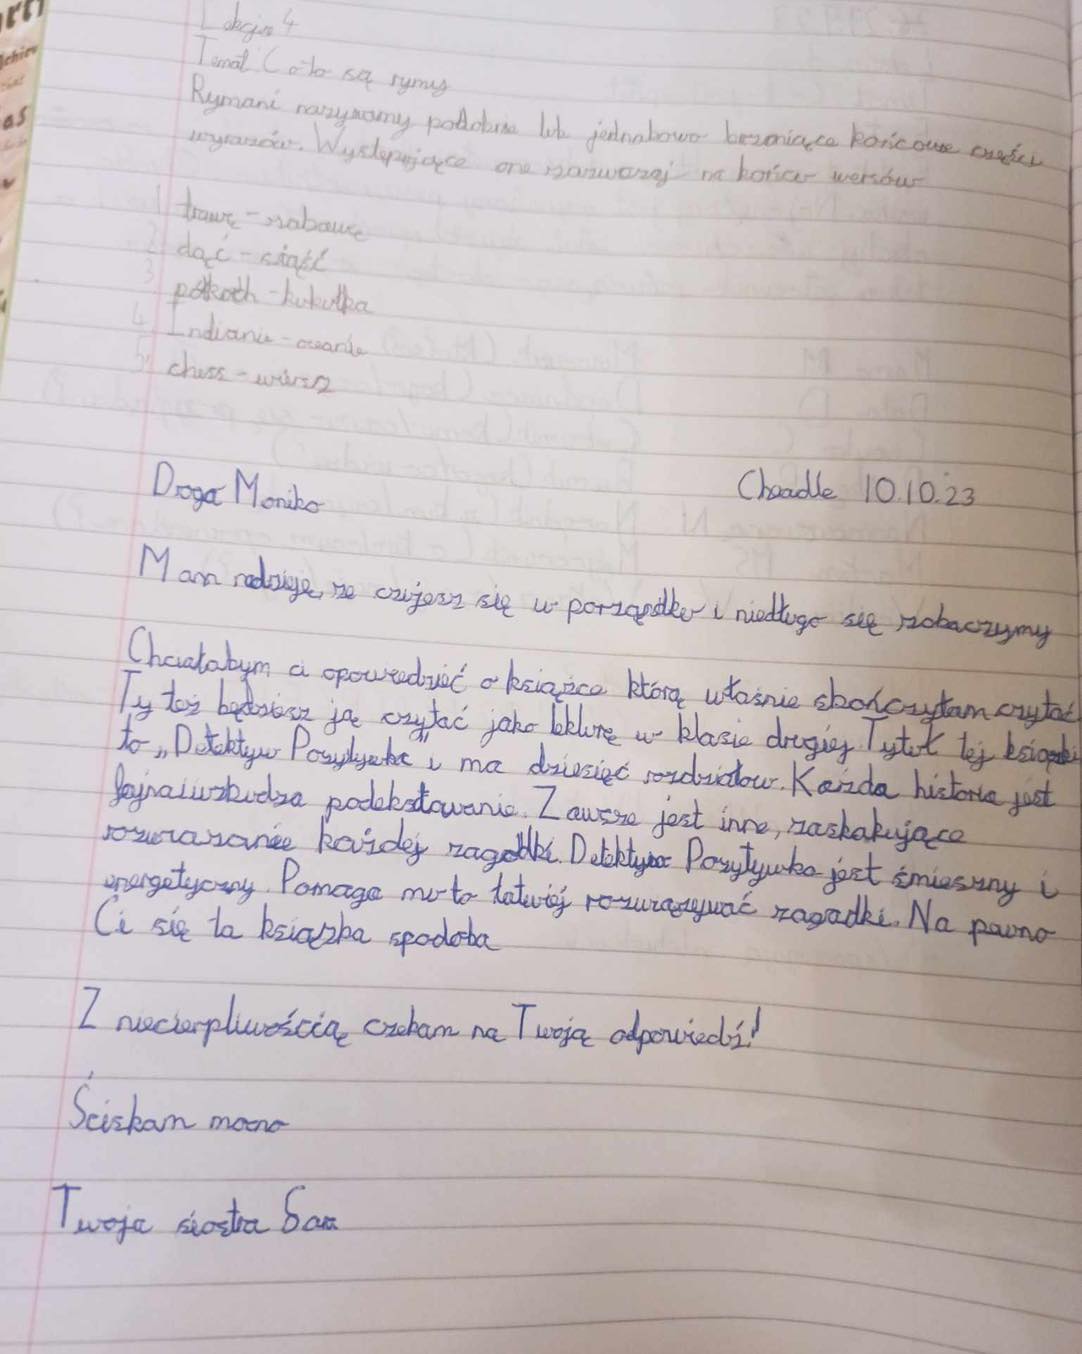 Lekcja 4
Temat Co to są rymy
Rymani nazywamy podobne lub jednakowo brzmiące końcowe części
wyrazów. Występujące one na końcu wersów
1 trawę - zabawę
2 dąć - siąść
3 - kukułka
4. Indianie - oceanie
5. chess - wiersz
Droga Moniko
Cheadle 10.10.23
Mam nadzieję, że czujesz się w porządku i niedługo się zobaczymy
Chciałabym ci opowiedzieć o książce którą właśnie skończyłam czytać
Ty też będziesz ją czytać jako lekturę w klasie drugiej. Tytuł tej książki
to „Detektyw Pozytywka" i ma dziesięć rozdziałów. Każda historia jest
fajna i wzbudza podekstowanie. Zawsze jest inne, zaskakujące
każdej zagadki. Detektyw Pozytywka jest śmieszny i
energetyczny. Pomaga mu to łatwiej rozwiązywać zagadki. Na pewno
Ci się ta książka spodoba
Z niecierpliwością czekam na Twoją odpowiedź!
Ściskam mocno
Twoja siostra